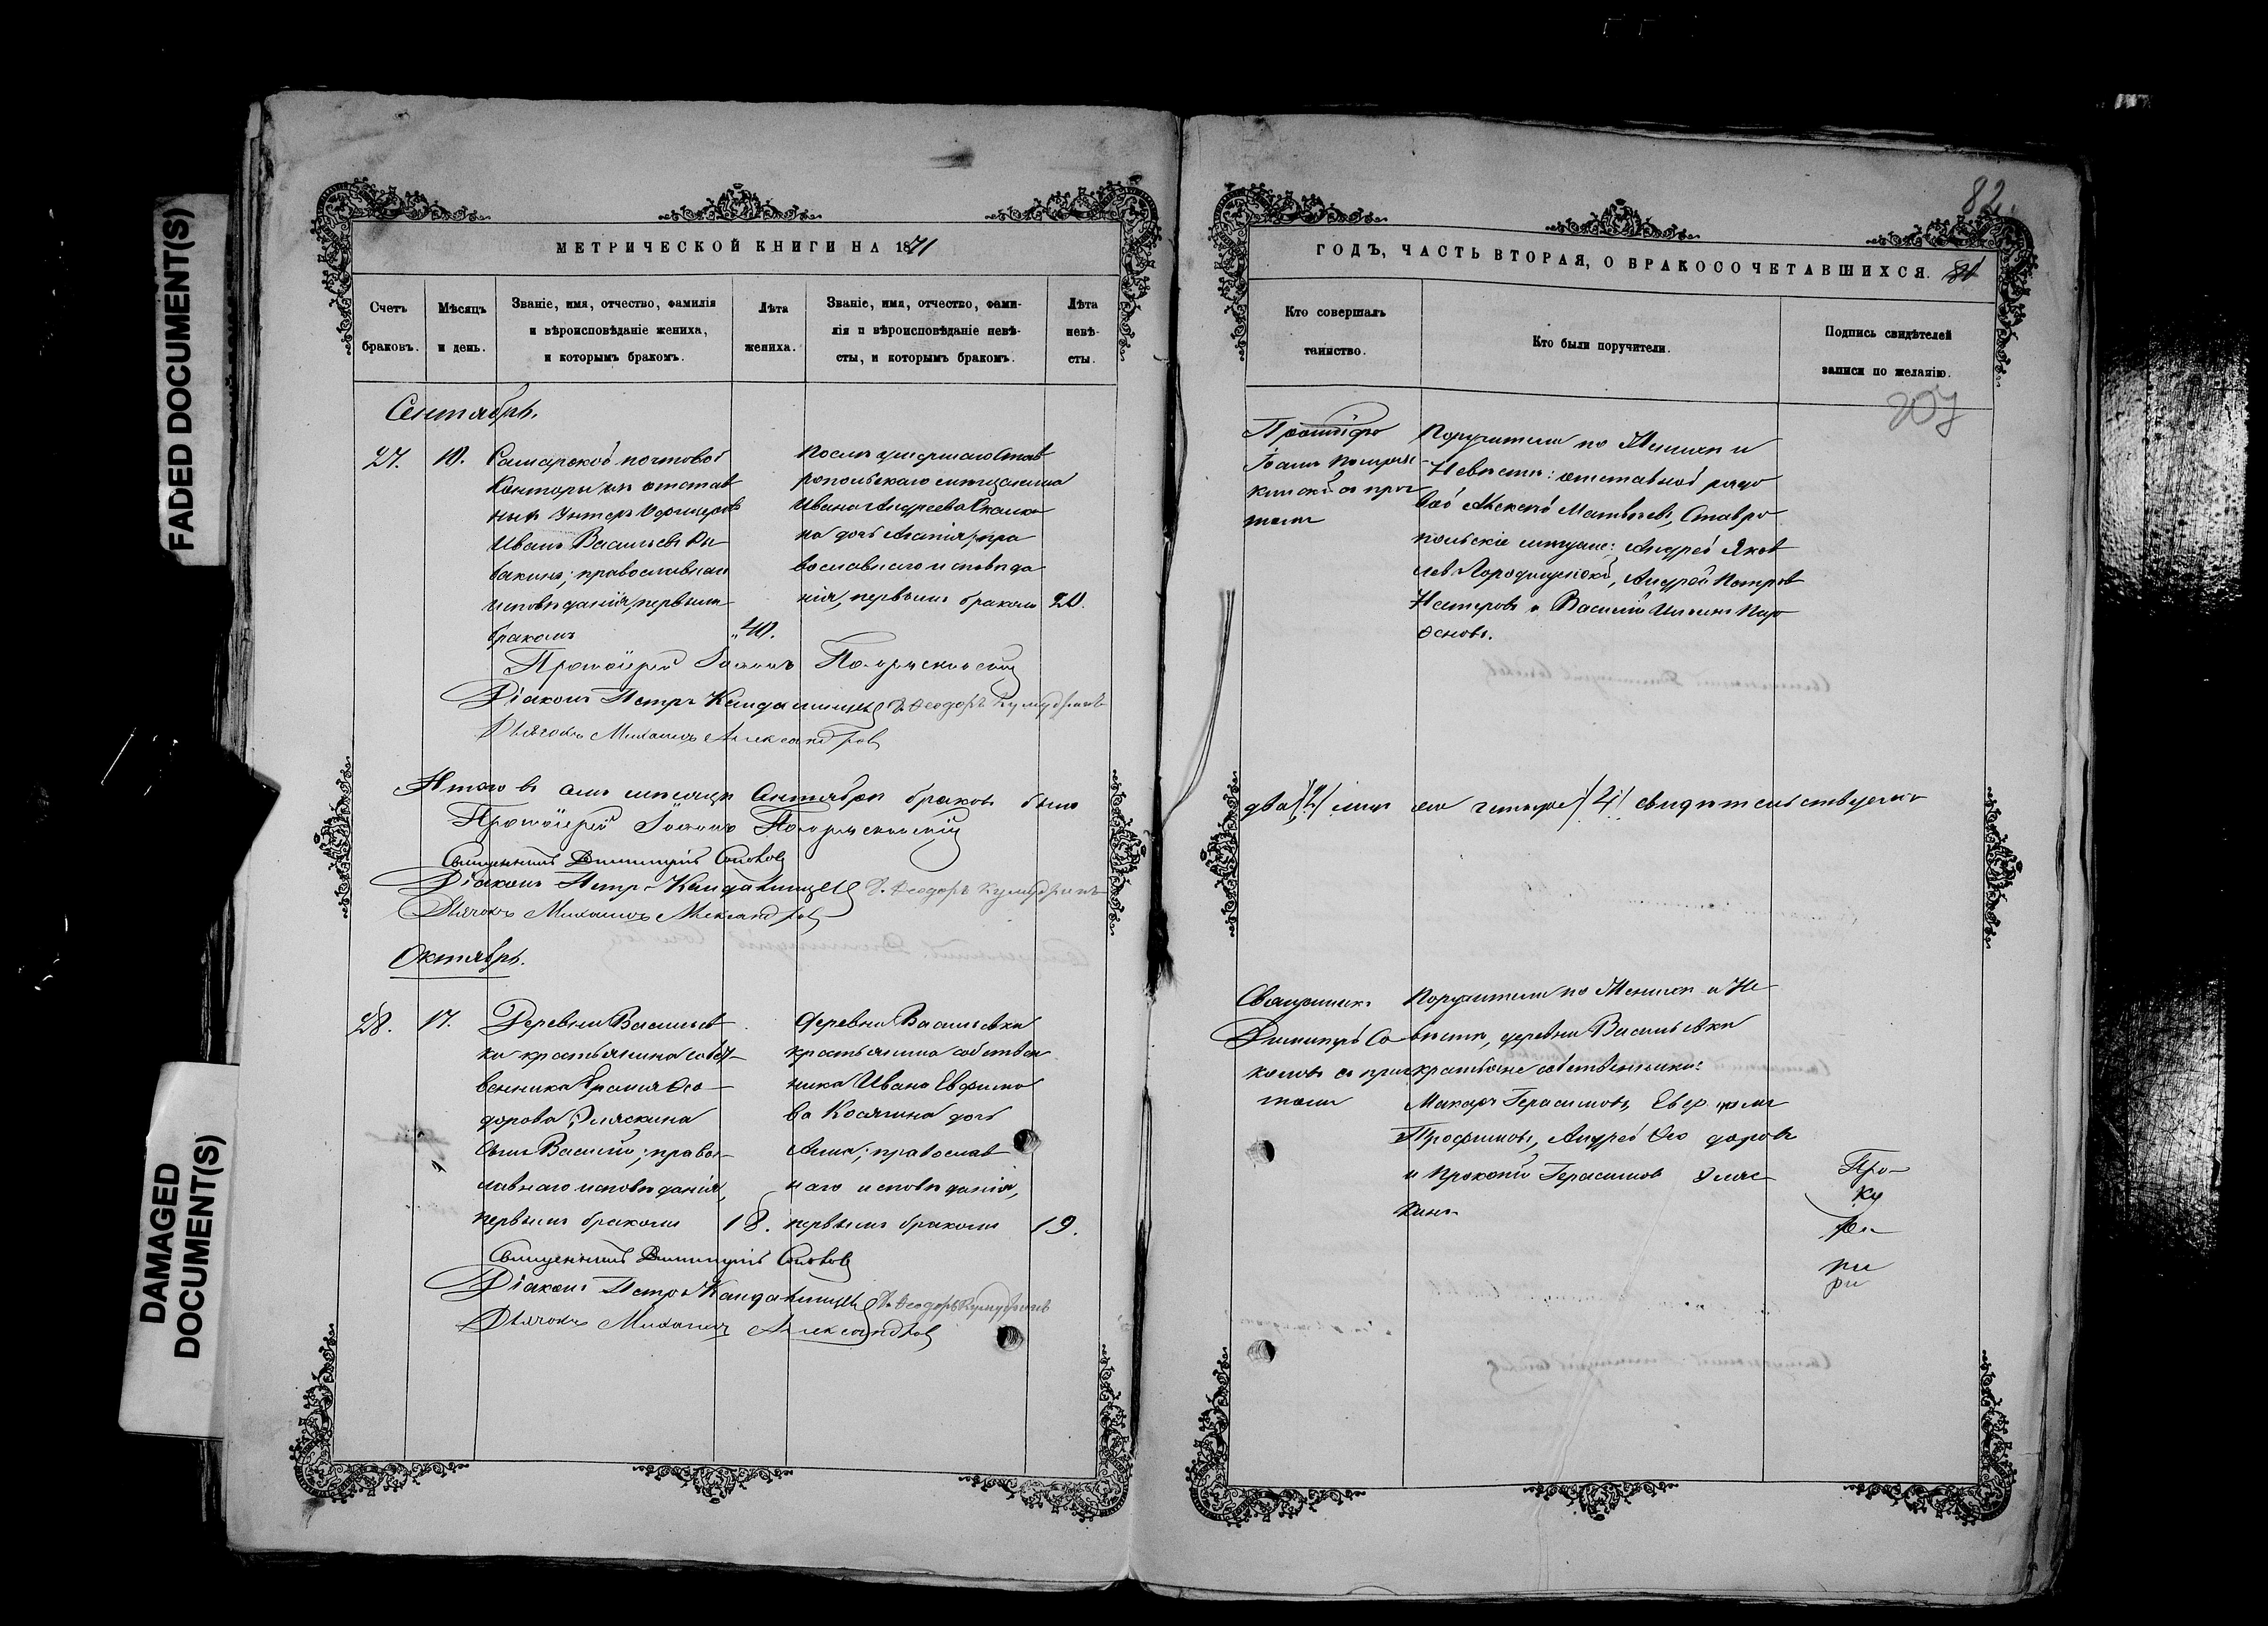 FADED DOCUMENT(S)
DAMAGED
DOCUMENT(S)
МЕТРИЧЕСКОЙ КНИГИ НА 1871
Счетъ
браковъ.
Мѣсяцъ
и день.
Званіе, имя, отчество, фамилія
и вѣроисповѣданіе жениха,
и которымъ бракомъ.
Лѣта
жениха.
Званіе, имя, отчество, фами-
лія и вѣроисповѣданіе невѣ-
сты, и которымъ бракомъ.
Лѣта
невѣ-
сты.
Сентябрь.
27.
10.
Самарской почтовой
Конторы изъ отстав
ныхъ Унтеръ Офицеровъ
Иванъ Васильевъ
православнаго
исповѣданія, первымъ
бракомъ
40.
Послѣ умершаго Став
ропольскаго мѣщанина
Ивана Андреева
на дочь пра
вославнаго исповѣда
нія, первымъ бракомъ
20.
Протоіерей Іоаннъ
Діаконъ Петръ
Дьячокъ Михаилъ Александровъ
Итого въ семъ мѣсяцѣ Сентябрѣ браковъ было
Протоіерей Іоаннъ
Священникъ Димитрій Соколовъ
Діаконъ Петръ
Дьячокъ Михаилъ Александровъ
Октябрь.
28.
17.
Деревни Васильев
ки крестьянина собст
венника Ѳео
дорова
сынъ Василій; право
славнаго исповѣданія,
первымъ бракомъ
18.
деревни Васильевки
крестьянина собствен
ника Ивана Евфимо
ва Косягина дочь
Анна; православ
наго исповѣданія,
первымъ бракомъ
19.
Священникъ Димитрій Соколовъ
Діаконъ Петръ
Дьячокъ Михаилъ Александровъ
82.
ГОДЪ, ЧАСТЬ ВТОРАЯ, О БРАКОСОЧЕТАВШИХСЯ. 81
Кто совершалъ
таинство.
Кто были поручители.
Подпись свидѣтелей
записи по желанію.
207
Протоіерей
Іоаннъ
съ прич
томъ
Поручители по Женихѣ и
Невѣстѣ: отставной рядо
вой Алексѣй Матвѣевъ, Ставро
польскіе мѣщане: Андрей Яков
левъ Городищенской, Андрей Петровъ
Нестеровъ и Василій
два /2/ лицъ четыре /4/ свидѣтельствуемъ
Священникъ
Димитрій Со
коловъ съ прич
томъ
Поручители по Женихѣ и Не
вѣстѣ, деревни Васильевки
крестьяне собственники:
Макаръ Герасимовъ,
Трофимовъ, Андрей Ѳео доровъ
и Прокопій Герасимовъ
Про-
ку
ри
ри